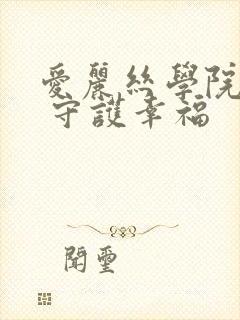 愛麗絲學院
守護幸福
閒璽